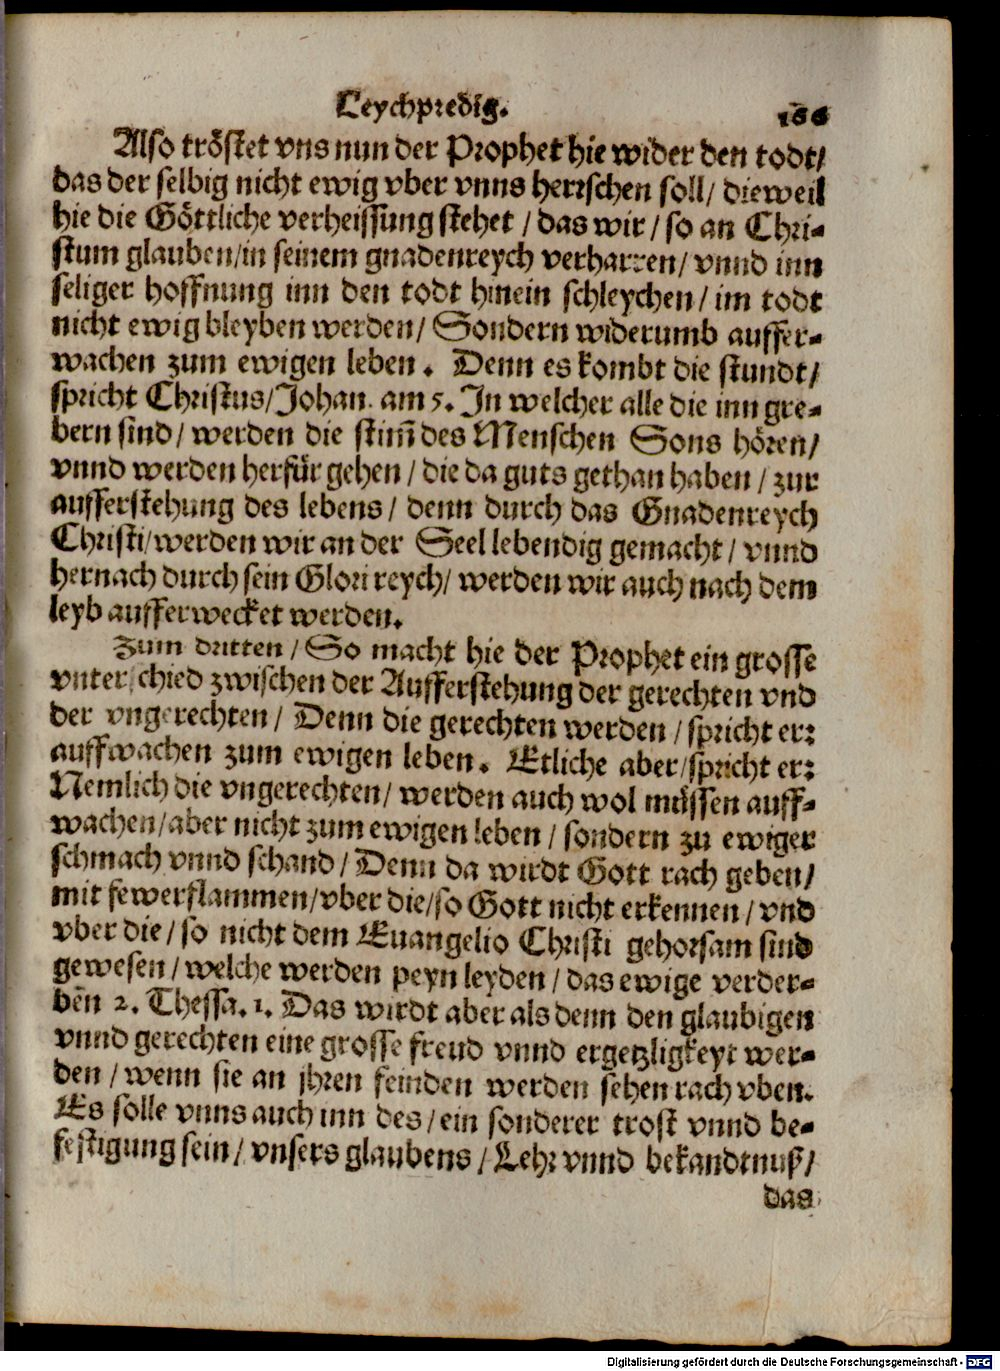 Leychpredig.
166
Also tröstet vns nun der Prophet hie wider den todt/
das der selbig nicht ewig vber vnns herrschen soll/ dieweil
hie die Göttliche verheissung stehet / das wir / so an Chri-
stum glauben/in seinem gnadenreych verharren/ vnnd inn
seliger hoffnung inn den todt hinein schleychen / im todt
nicht ewig bleyben werden/ Sondern widerumb auffer-
wachen zum ewigen leben. Denn es kombt die stundt/
spricht Christus/Johan. am 5. In welcher alle die inn gre-
bern sind/ werden die stim̃ des Menschen Sons hören/
vnnd werden herfür gehen / die da guts gethan haben / zur
aufferstehung des lebens/ denn durch das Gnadenreych
Christi/werden wir an der Seel lebendig gemacht / vnnd
hernach durch sein Glori reych/ werden wir auch nach dem
leyb aufferwecket werden.
Zum dritten / So macht hie der Prophet ein grosse
vnterschied zwischen der Aufferstehung der gerechten vnd
der vngerechten/ Denn die gerechten werden / spricht er:
auffwachen zum ewigen leben. Etliche aber/spricht er:
Nemlich die vngerechten/ werden auch wol müssen auff-
wachen/aber nicht zum ewigen leben / sondern zu ewiger
schmach vnnd schand/ Denn da wirdt Gott rach geben/
mit fewerflammen/vber die/so Gott nicht erkennen / vnd
vber die / so nicht dem Euangelio Christi gehorsam sind
gewesen / welche werden peyn leyden / das ewige verder-
bẽn 2. Thessa. 1. Das wirdt aber als denn den glaubigen
vnnd gerechten eine grosse freud vnnd ergetzligkeyt wer-
den / wenn sie an jhren feinden werden sehen rach vben.
Es solle vnns auch inn des / ein sonderer trost vnnd be-
festigung sein/ vnsers glaubens / Lehr vnnd bekandtnuß/
das
Digitalisierung gefördert durch die Deutsche Forschungsgemeinschaft - DFG